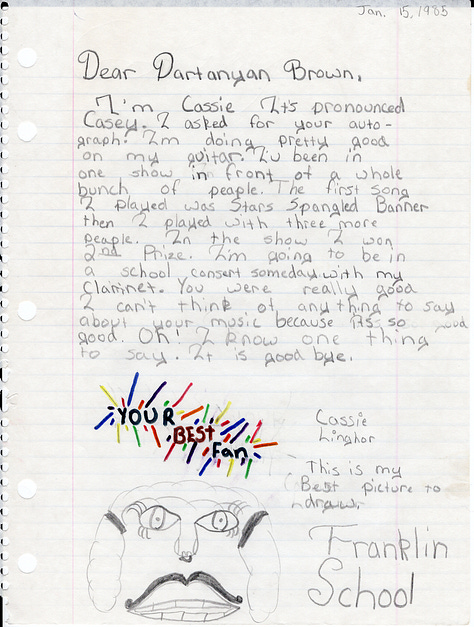 Jan. 15, 1985
Dear Dartanyan Brown,
I'm Cassie It's pronounced
Casey. I asked for your auto-
graph. I'm doing pretty good
on my guitar. Iv been in
one show in front of a whole
bunch of people. The first song
I played was Stars Spangled Banner
then I played with three more
people. In the show I won
2nd Prize. I'm going to be in
a school consert someday. with my
Clarinet. You were really good
I can't think of any thing to say
about your music because it's so good
good. Oh! I know one thing
to say. It is good bye.
YOUR
BEST
Fan
Cassie
This is my
Best picture to
draw.
Franklin
School